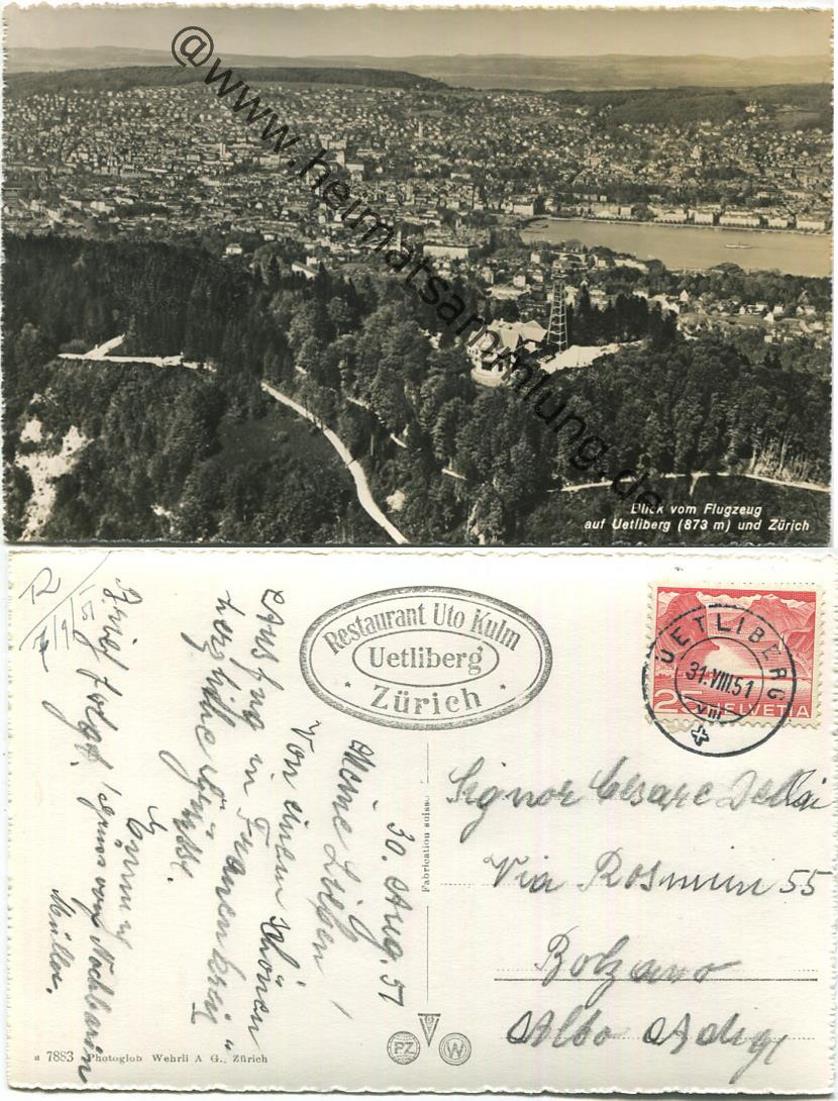 @www.heimatsammlung.de
Blick vom Flugzeug
auf Uetliberg (873 m) und Zürich
R
7/9/51
Restaurant Uto Kulm
Uetliberg
· Zürich ·
UETLIBERG
31.VIII.51
VIII
25 HELVETIA
30. Aug. 51
Meine Lieben!
Von einem schönen
Ausflug in
herzliche Grüsse.
Brief folgt!
Gruss von Nachbarin
Müller.
Fabrication suisse
Signor Cesare
Via Rosmini 55
Bolzano
Alto Adige
a 7883 Photoglob Wehrli A G., Zürich
PZ
W